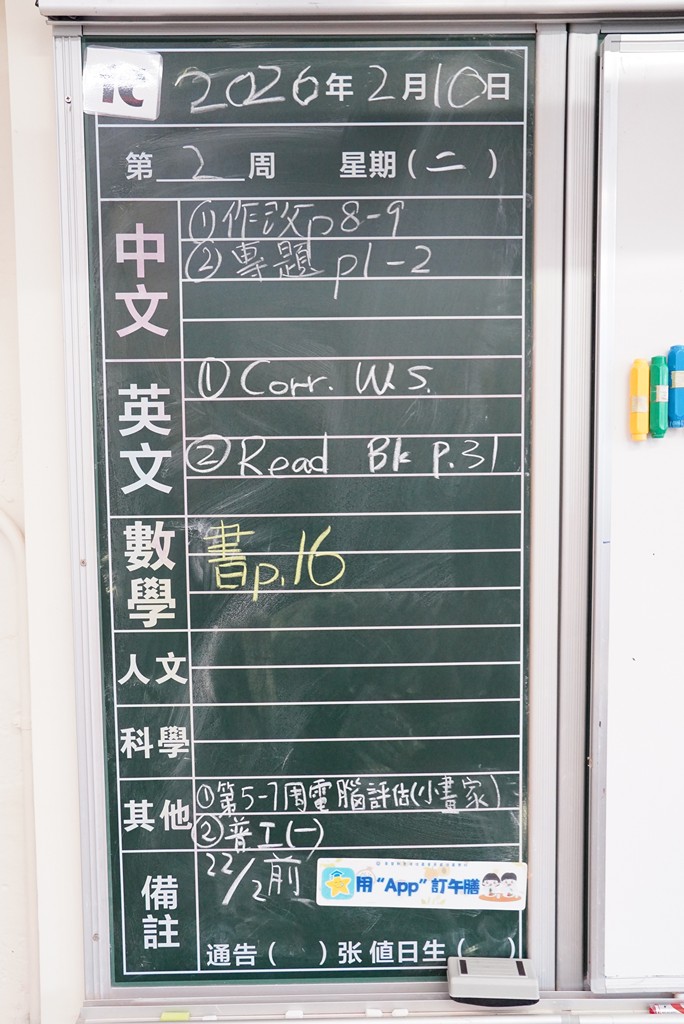 2026年2月10日
第 2 周 星期(二)
中文
①作改p8-9
②專題 p1-2
英文
①Corr. W.S.
②Read Bk p.31
數學
書p.16
人文
科學
其他
①第5-7周電腦評估(小畫家)
②普工(一)
備註
22/2前
用“App”訂午膳
通告( )张 值日生( )